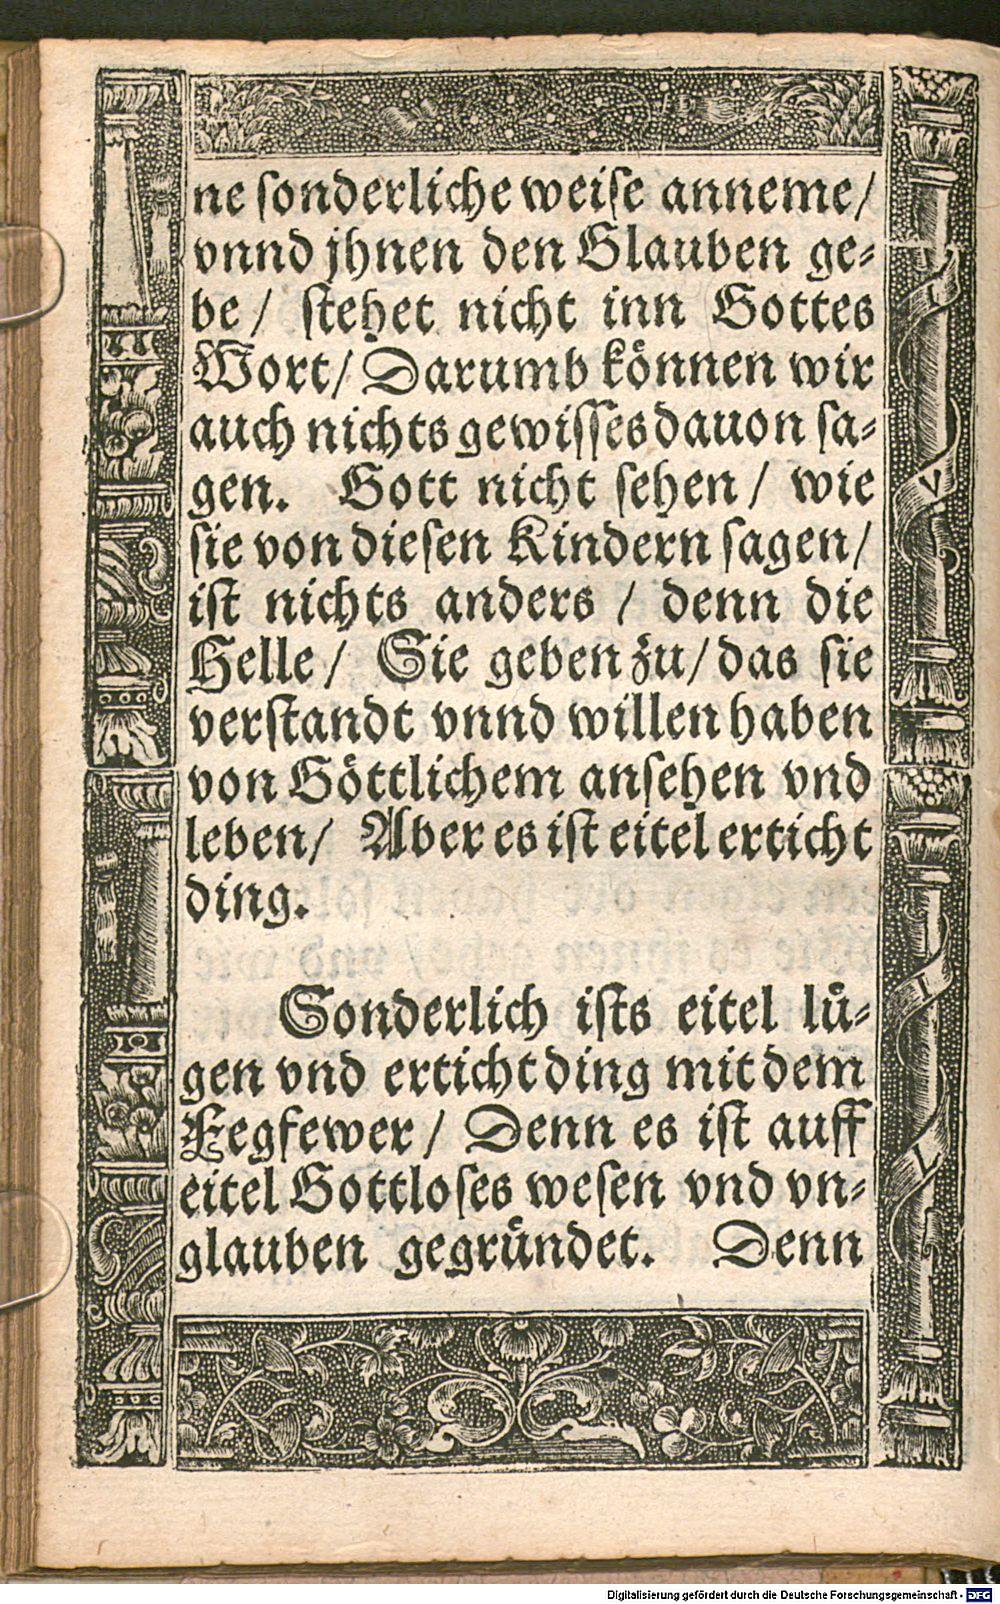 ne sonderliche weise anneme/
vnnd jhnen den Glauben ge-
be/ stehet nicht inn Gottes
Wort/ Darumb können wir
auch nichts gewisses dauon sa-
gen. Gott nicht sehen/ wie
sie von diesen Kindern sagen/
ist nichts anders / denn die
Helle/ Sie geben zu/ das sie
verstandt vnnd willen haben
von Göttlichem ansehen vnd
leben/ Aber es ist eitel erticht
ding.
Sonderlich ists eitel lü-
gen vnd erticht ding mit dem
Fegfewer/ Denn es ist auff
eitel Gottloses wesen vnd vn-
glauben gegründet. Denn
Digitalisierung gefördert durch die Deutsche Forschungsgemeinschaft - DFG